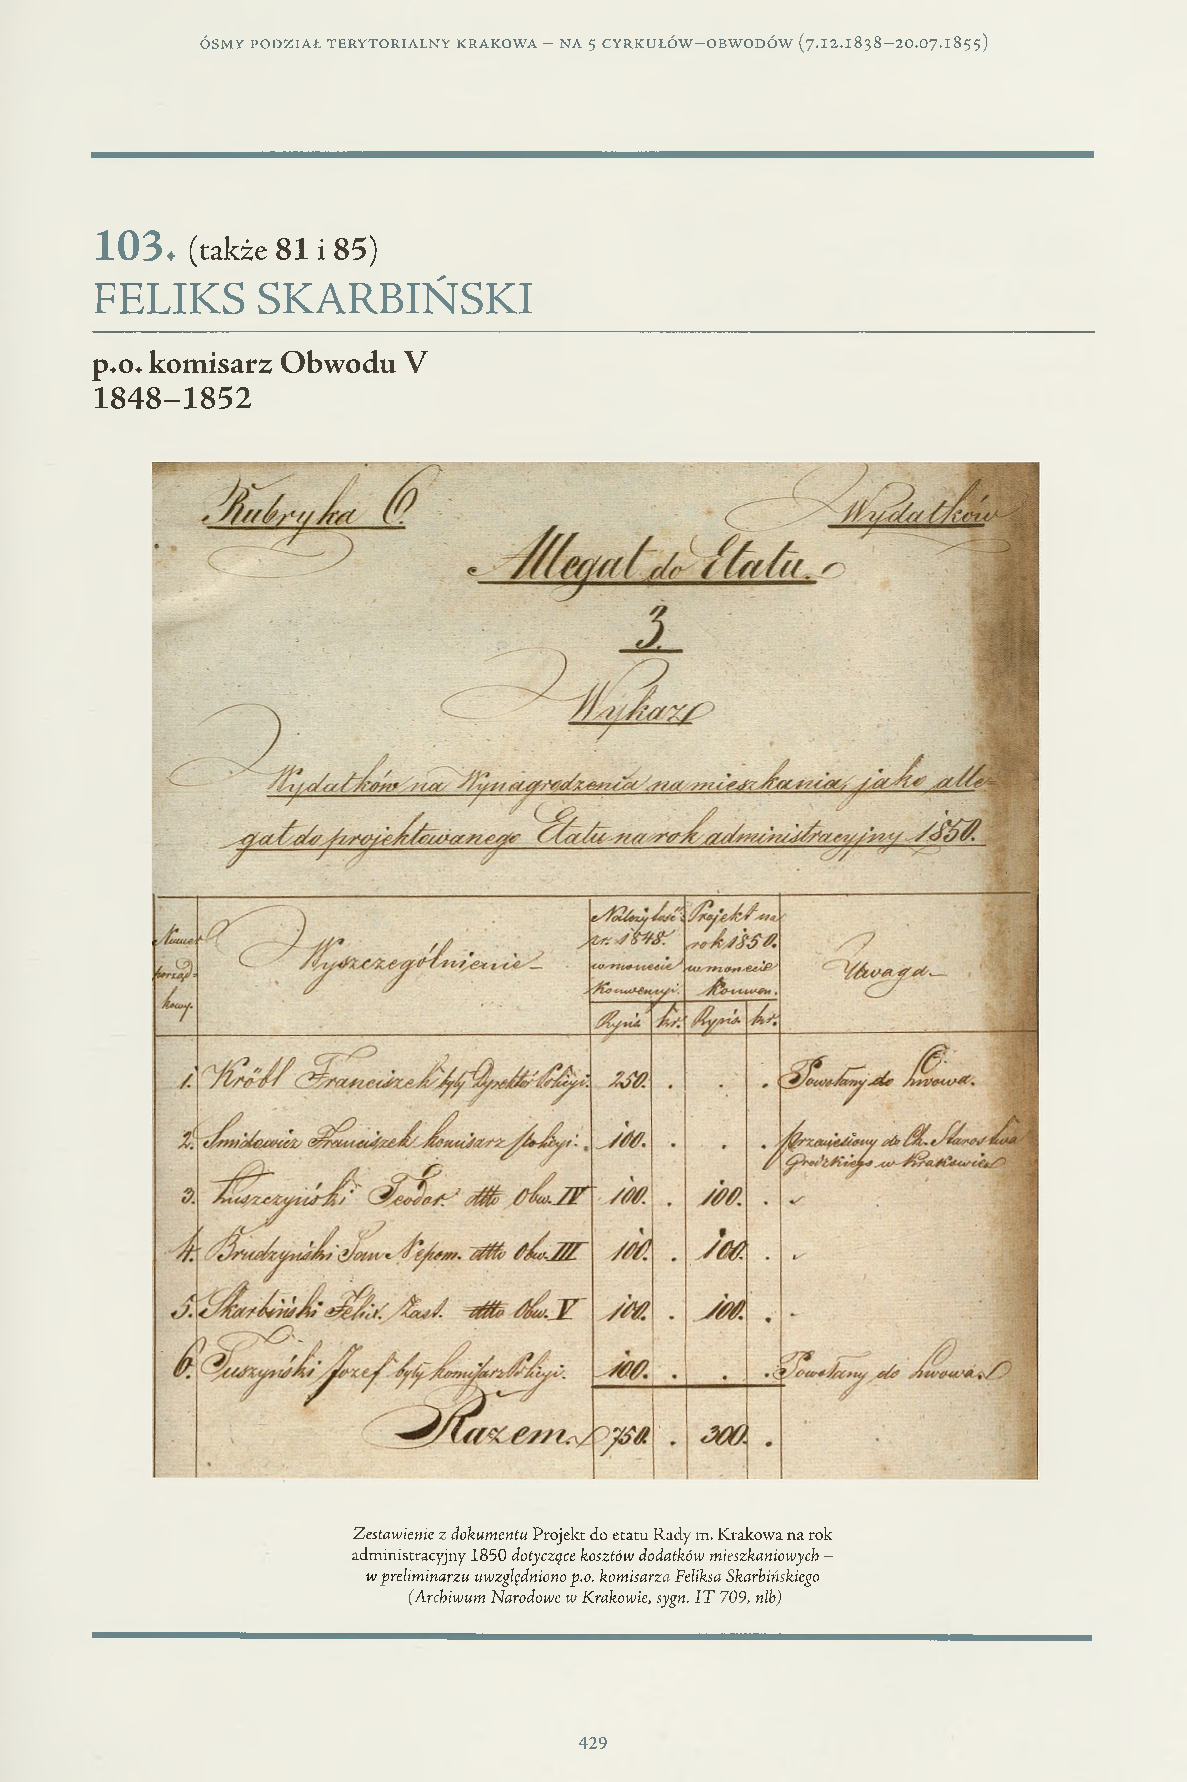 ÓSMY PODZIAŁ TERYTORIALNY KRAKOWA – NA 5 CYRKUŁÓW–OBWODÓW (7.12.1838–20.07.1855)
103. (także 81 i 85)
FELIKS SKARBIŃSKI
p.o. komisarz Obwodu V
1848–1852
Rubryka 6. Wydatków
Allegat do Etatu.
3.
Wykaz
Wydatków na Wynagrodzenia na mieszkania, jako alle-
gat do projektowanego Etatu na rok administracyjny 1850.
Numer porząd- kowy. Wyszczególnienie Należytość r. 1848. w monecie Konwencyi. Projekt na rok 1850. w monecie Konwen. Uwaga
Ryńs. kr. Ryńs. kr.
1. Kröbl Franciszek były Dyrektor Policyi. 250. . . . Powołany do Lwowa.
2. Smidowicz Franciszek komisarz Policyi. 100. . . . przeniesiony do Ck. Starostwa Grodzkiego w Krakowie
3. Łuszczyński Teodor. dtto Obw. IV 100. . 100. .
4. Brudzyński Jan Nepom. dtto Obw. III 100. . 100. .
5. Skarbiński Felix. Zast. dtto Obw. V 100. . 100. .
6. Tuszyński Jozef były komisarz Policyi. 100. . . . Powołany do Lwowa.
Razem. 750. . 300. .
Zestawienie z dokumentu Projekt do etatu Rady m. Krakowa na rok
administracyjny 1850 dotyczące kosztów dodatków mieszkaniowych –
w preliminarzu uwzględniono p.o. komisarza Feliksa Skarbińskiego
(Archiwum Narodowe w Krakowie, sygn. IT 709, nlb)
429